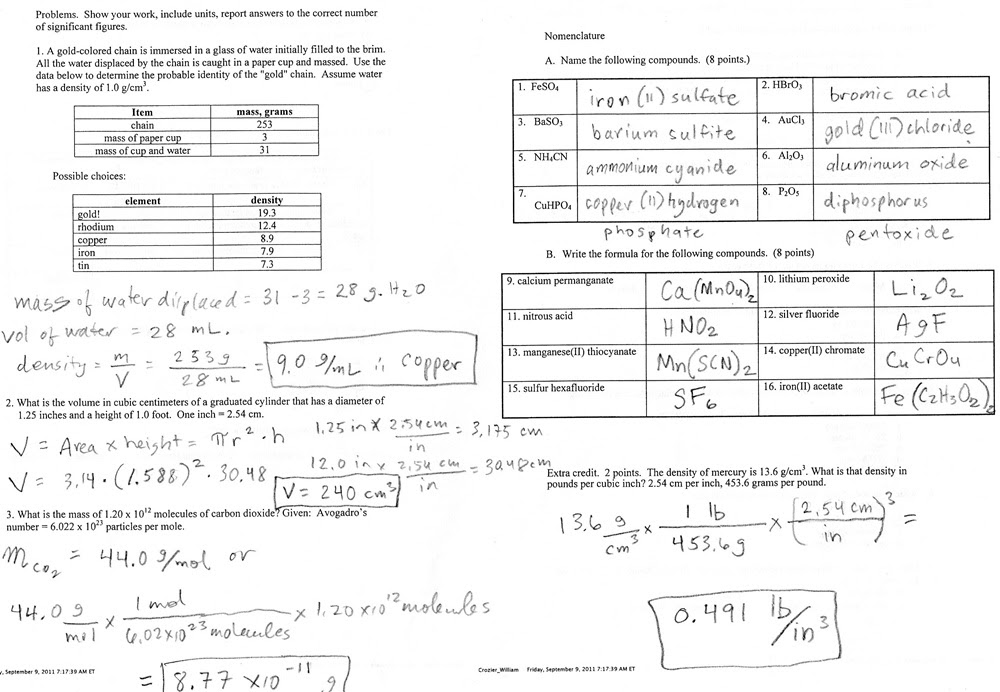 Problems. Show your work, include units, report answers to the correct number
of significant figures.
1. A gold-colored chain is immersed in a glass of water initially filled to the brim.
All the water displaced by the chain is caught in a paper cup and massed. Use the
data below to determine the probable identity of the "gold" chain. Assume water
has a density of 1.0 g/cm³.
Item mass, grams
chain 253
mass of paper cup 3
mass of cup and water 31
Possible choices:
element density
gold! 19.3
rhodium 12.4
copper 8.9
iron 7.9
tin 7.3
mass of water displaced = 31 - 3 = 28 g. H₂O
vol of water = 28 mL.
density = m/V = 253 g / 28 mL = 9.0 g/mL ∴ copper
2. What is the volume in cubic centimeters of a graduated cylinder that has a diameter of
1.25 inches and a height of 1.0 foot. One inch = 2.54 cm.
V = Area x height = πr² · h 1.25 in x 2.54 cm / in = 3.175 cm
V = 3.14 · (1.588)² · 30.48 12.0 in x 2.54 cm / in = 30.48 cm
V = 240 cm³
3. What is the mass of 1.20 x 10¹² molecules of carbon dioxide? Given: Avogadro's
number = 6.022 x 10²³ particles per mole.
m CO₂ = 44.0 g/mol or
44.0 g / mol x 1 mol / 6.02 x 10²³ molecules x 1.20 x 10¹² molecules
= 8.77 x 10⁻¹¹ g
, September 9, 2011 7:17:39 AM ET
Nomenclature
A. Name the following compounds. (8 points.)
1. FeSO₄ iron (II) sulfate 2. HBrO₃ bromic acid
3. BaSO₃ barium sulfite 4. AuCl₃ gold (III) chloride
5. NH₄CN ammonium cyanide 6. Al₂O₃ aluminum oxide
7. CuHPO₄ copper (II) hydrogen 8. P₂O₅ diphosphorus
phosphate pentoxide
B. Write the formula for the following compounds. (8 points)
9. calcium permanganate Ca(MnO₄)₂ 10. lithium peroxide Li₂O₂
11. nitrous acid HNO₂ 12. silver fluoride AgF
13. manganese(II) thiocyanate Mn(SCN)₂ 14. copper(II) chromate CuCrO₄
15. sulfur hexafluoride SF₆ 16. iron(II) acetate Fe(C₂H₃O₂)₂
Extra credit. 2 points. The density of mercury is 13.6 g/cm³. What is that density in
pounds per cubic inch? 2.54 cm per inch, 453.6 grams per pound.
13.6 g / cm³ x 1 lb / 453.6 g x (2.54 cm / in)³ =
0.491 lb/in³
Crozier_William Friday, September 9, 2011 7:17:39 AM ET